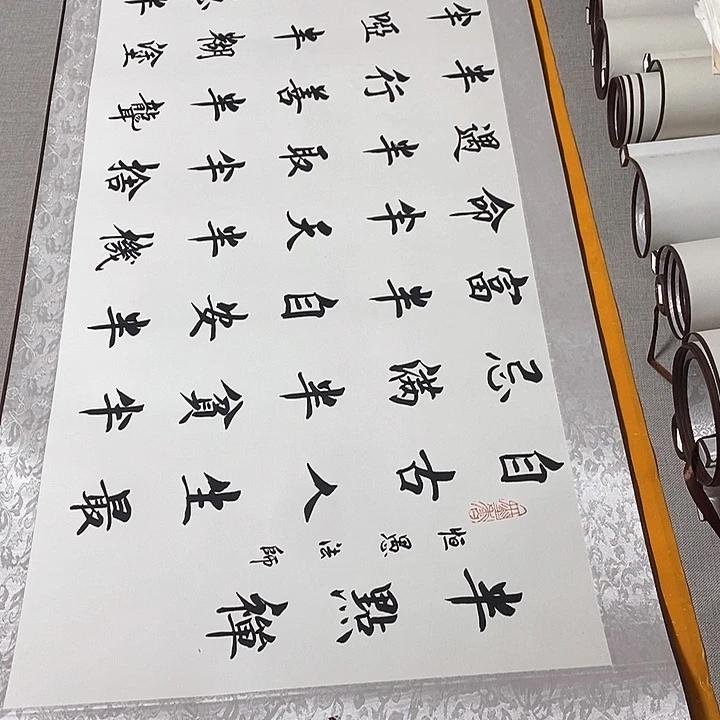 半點禪
恒愚法師
自古人生最
忌滿半貧半
富半自安半
命半天半機
遇半取半捨
半行善半聾
半啞半糊塗